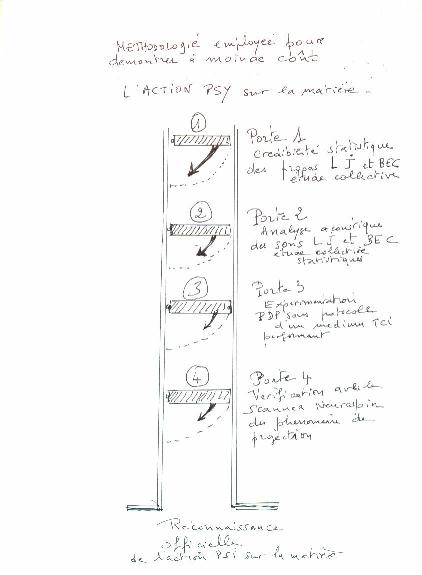 METHODOLOGIE employée pour
demontrer à moindre coût
L'ACTION PSY sur la matière.
1
Porte 1
Credibilité statistique
des propos L J et BEC
etude collective
2
Porte 2
Analyse acoustique
du sons L J et BEC
etude collective
statistiques
3
Porte 3
Experimentation
PDP sous protocole
d'un medium TCI
performant
4
Porte 4
Verification avec le
Scanner Neurospin
du phenomene de
projection
Reconnaissance
officielle
de l'action PSI sur la matière